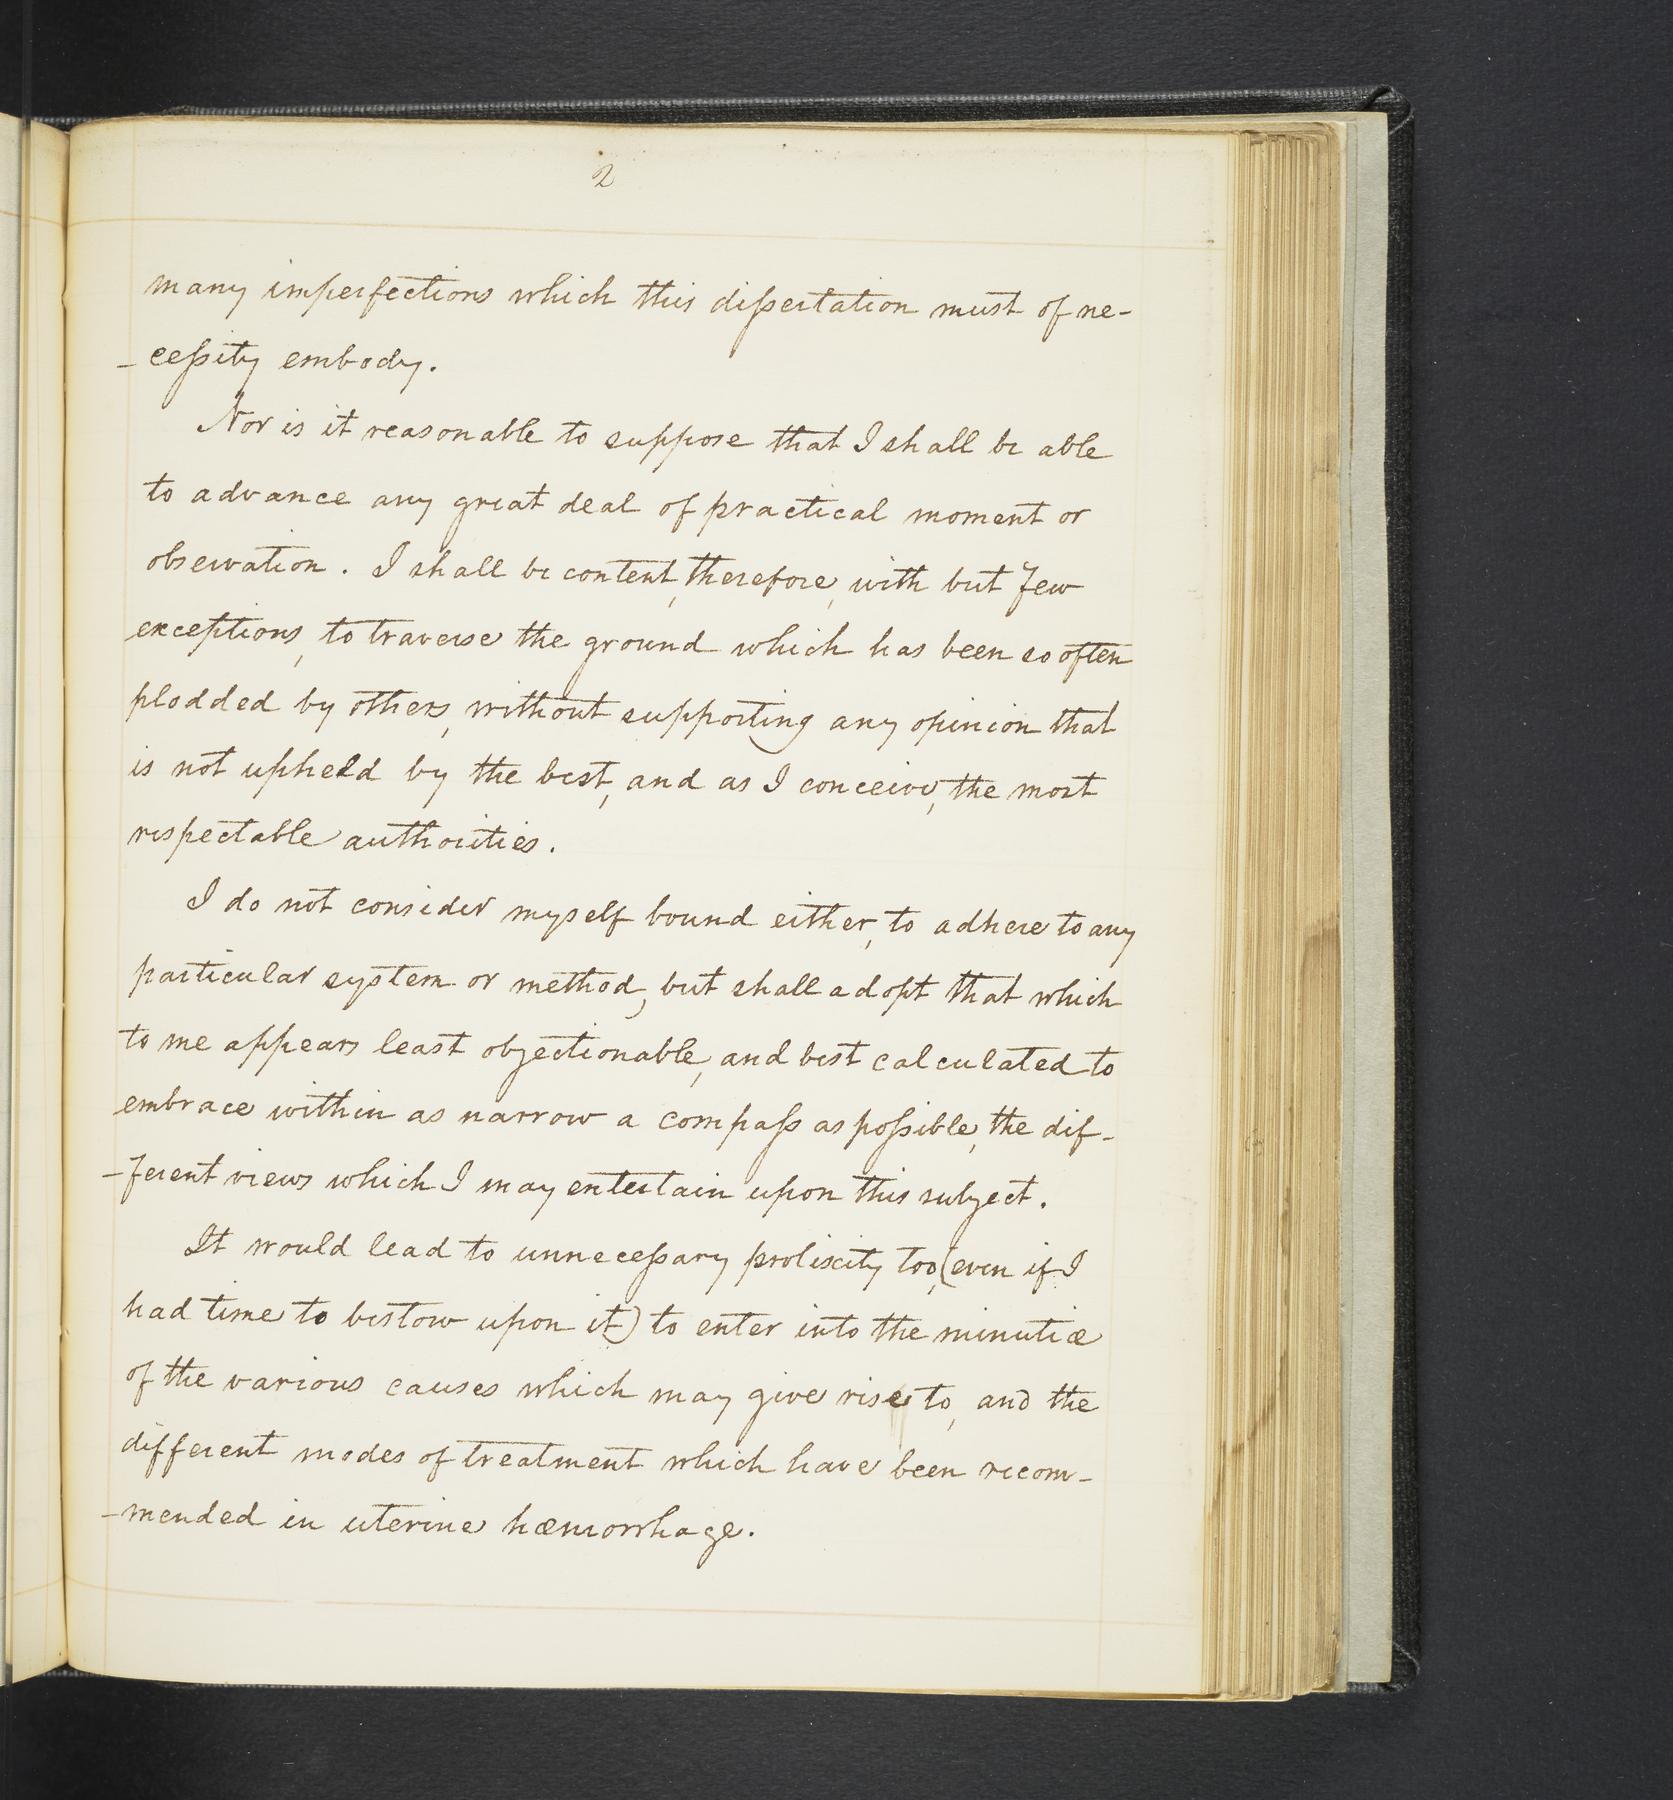 2
many imperfections which this dissertation must of ne-
-cessity embody.
Nor is it reasonable to suppose that I shall be able
to advance any great deal of practical moment or
observation. I shall be content, therefore, with but few
exceptions, to traverse the ground which has been so often
plodded by others, without supporting any opinion that
is not upheld by the best, and as I conceive, the most
respectable authorities.
I do not consider myself bound either, to adhere to any
particular system or method, but shall adopt that which
to me appears least objectionable, and best calculated to
embrace within as narrow a compass as possible, the dif-
-ferent views which I may entertain upon this subject.
It would lead to unnecessary prolixity too, (even if I
had time to bestow upon it) to enter into the minutiæ
of the various causes which may give rise to, and the
different modes of treatment which have been recom-
-mended in uterine hæmorrhage.